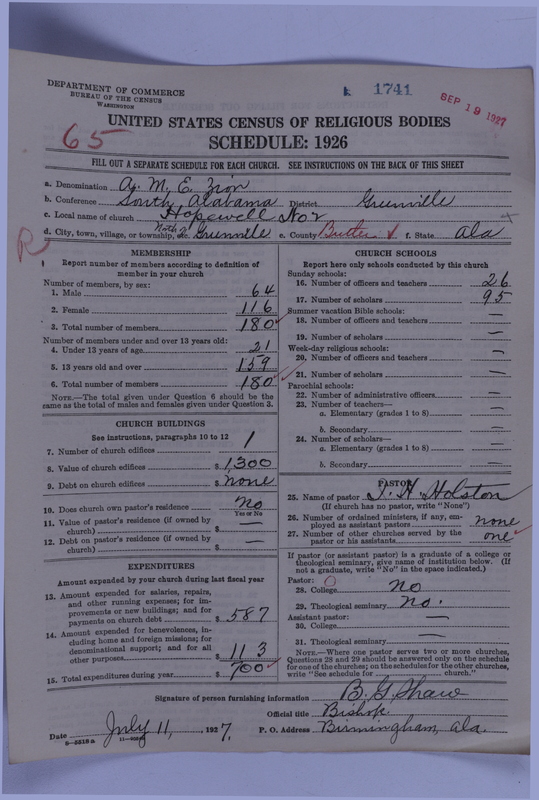 DEPARTMENT OF COMMERCE
BUREAU OF THE CENSUS
WASHINGTON
1741
SEP 19 1927
65
UNITED STATES CENSUS OF RELIGIOUS BODIES
SCHEDULE: 1926
FILL OUT A SEPARATE SCHEDULE FOR EACH CHURCH. SEE INSTRUCTIONS ON THE BACK OF THIS SHEET
a. Denomination A. M. E. Zion
b. Conference South Alabama District Greenville
c. Local name of church Hopewell No 2
d. City, town, village, or township, etc. North of Greenville e. County Butler f. State Ala
R
MEMBERSHIP
Report number of members according to definition of
member in your church
Number of members, by sex:
1. Male 64
2. Female 116
3. Total number of members 180
Number of members under and over 13 years old:
4. Under 13 years of age 21
5. 13 years old and over 159
6. Total number of members 180
NOTE.—The total given under Question 6 should be
same as the total of males and females given under Question 3.
CHURCH BUILDINGS
See instructions, paragraphs 10 to 12
7. Number of church edifices 1
8. Value of church edifices $ 1,300
9. Debt on church edifices $ none
10. Does church own pastor's residence? no
Yes or No
11. Value of pastor's residence (if owned by
church) $ —
12. Debt on pastor's residence (if owned by
church) $ —
EXPENDITURES
Amount expended by your church during last fiscal year
13. Amount expended for salaries, repairs,
and other running expenses; for im-
provements or new buildings; and for
payments on church debt $ 587
14. Amount expended for benevolences, in-
cluding home and foreign missions; for
denominational support; and for all
other purposes $ 113
15. Total expenditures during year $ 700
CHURCH SCHOOLS
Report here only schools conducted by this church
Sunday schools:
16. Number of officers and teachers 26
17. Number of scholars 95
Summer vacation Bible schools:
18. Number of officers and teachers —
19. Number of scholars —
Week-day religious schools:
20. Number of officers and teachers —
21. Number of scholars —
Parochial schools:
22. Number of administrative officers —
23. Number of teachers—
a. Elementary (grades 1 to 8) —
b. Secondary —
24. Number of scholars—
a. Elementary (grades 1 to 8) —
b. Secondary —
PASTOR
25. Name of pastor J. H. Holston
(If church has no pastor, write "None")
26. Number of ordained ministers, if any, em-
ployed as assistant pastors none
27. Number of other churches served by the
pastor or his assistants one
If pastor (or assistant pastor) is a graduate of a college or
theological seminary, give name of institution below. (If
not a graduate, write "No" in the space indicated.)
Pastor:
28. College No
29. Theological seminary No.
Assistant pastor: —
30. College —
31. Theological seminary —
NOTE.—Where one pastor serves two or more churches,
Questions 28 and 29 should be answered only on the schedule
for one of the churches; on the schedules for the other churches,
write "See schedule for church."
Signature of person furnishing information B. G. Shaw
Official title Bishop
Date July 11, 1927. P. O. Address Birmingham, Ala.